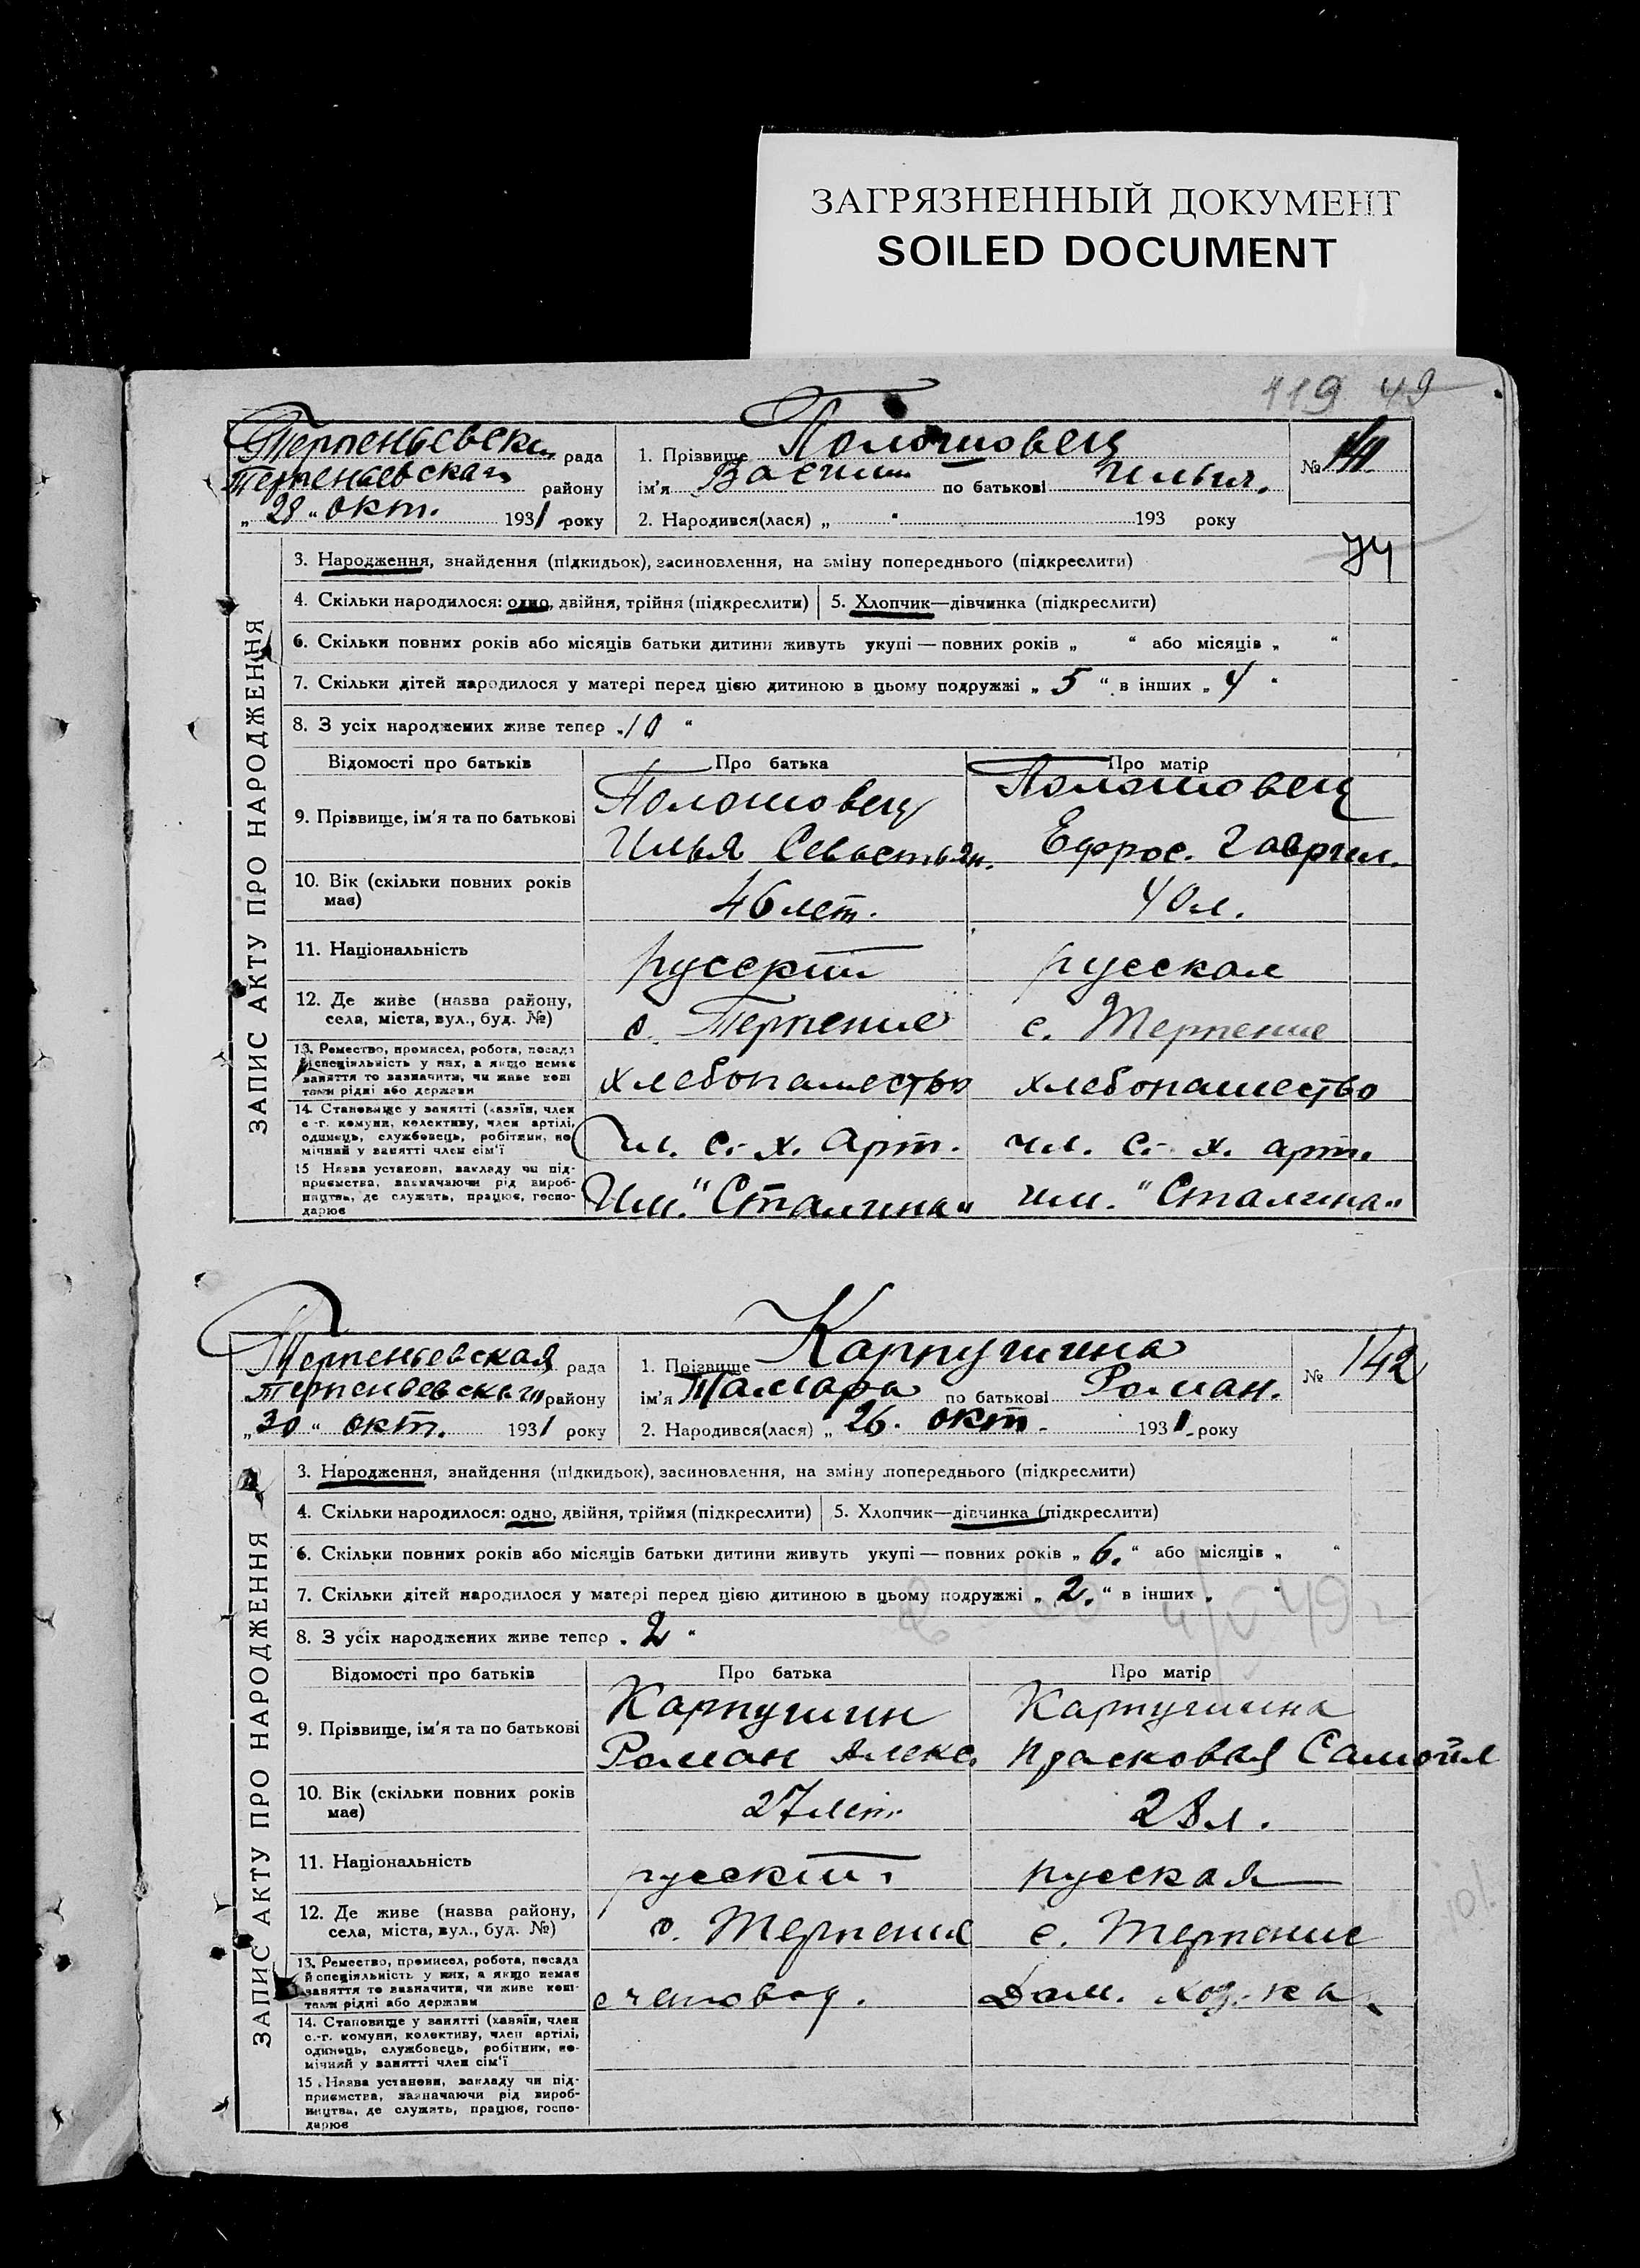 ЗАГРЯЗНЕННЫЙ ДОКУМЕНТ
SOILED DOCUMENT
119 49
Терпеньевская рада
Терпеньевская району
„ 28 “ окт. 1931 року
1. Прізвище Поломовец
ім'я Василий по батькові Ильич.
№ 141.
2. Народився(лася) „ “ 193 року
ЗАПИС АКТУ ПРО НАРОДЖЕННЯ
3. Народження, знайдення (підкидьок), засиновлення, на зміну попереднього (підкреслити)
4. Скільки народилося: одно, двійня, трійня (підкреслити) 5. Хлопчик—дівчинка (підкреслити)
6. Скільки повних років або місяців батьки дитини живуть укупі — повних років „ “ або місяців „ “
7. Скільки дітей народилося у матері перед цією дитиною в цьому подружжі „ 5 “ в інших „ 4 “
8. З усіх народжених живе тепер „ 10 “
Відомості про батьків Про батька Про матір
9. Прізвище, ім'я та по батькові
Поломовец Поломовец
Илья Севастьян. Ефрос. Гаврил.
10. Вік (скільки повних років має) 46 лет. 40 л.
11. Національність русский русская
12. Де живе (назва району, села, міста, вул., буд. №) с. Терпение с. Терпение
13. Ремество, промисел, робота, посада й спеціяльність у них, а якщо немає заняття то зазначити, чи живе коштами рідні або держави
хлебопашество хлебопашество
14. Становище у занятті (хазяїн, член с.-г. комуни, колективу, член артілі, одинець, службовець, робітник, помічний у занятті член сім'ї
чл. с.-х. арт. чл. с.-х. арт.
15 Назва установи, закладу чи підприємства, зазначаючи рід виробництва, де служить, працює, господарює
Им. "Сталина" им. "Сталина"
Терпеньевская рада
Терпеньевская району
„ 30 “ окт. 1931 року
1. Прізвище Карпушина
ім'я Тамара по батькові Роман.
№ 142
2. Народився(лася) „ 26. окт. 1931 року
ЗАПИС АКТУ ПРО НАРОДЖЕННЯ
3. Народження, знайдення (підкидьок), засиновлення, на зміну попереднього (підкреслити)
4. Скільки народилося: одно, двійня, трійня (підкреслити) 5. Хлопчик—дівчинка (підкреслити)
6. Скільки повних років або місяців батьки дитини живуть укупі — повних років „ 6. “ або місяців „ “
7. Скільки дітей народилося у матері перед цією дитиною в цьому подружжі „ 2. “ в інших „ “
8. З усіх народжених живе тепер „ 2 “
Відомості про батьків Про батька Про матір
9. Прізвище, ім'я та по батькові
Карпушин Карпушина
Роман Алекс. Прасковая Самойл
10. Вік (скільки повних років має) 27 лет. 28 л.
11. Національність русский русская
12. Де живе (назва району, села, міста, вул., буд. №) с. Терпение с. Терпение
13. Ремество, промисел, робота, посада й спеціяльність у них, а якщо немає заняття то зазначити, чи живе коштами рідні або держави
счетовод. Дом. хоз-ка
14. Становище у занятті (хазяїн, член с.-г. комуни, колективу, член артілі, одинець, службовець, робітник, помічний у занятті член сім'ї
15. Назва установи, закладу чи підприємства, зазначаючи рід виробництва, де служить, працює, господарює